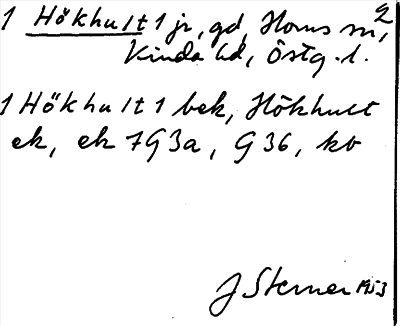 2
1 Hökhult 1 jr, gd, Horns sn,
Kinda hd, Östg. l.
1 Hökhult 1 bek, Hökhult
ek, ek 7G3a, G36, kb
J Sterner 1953